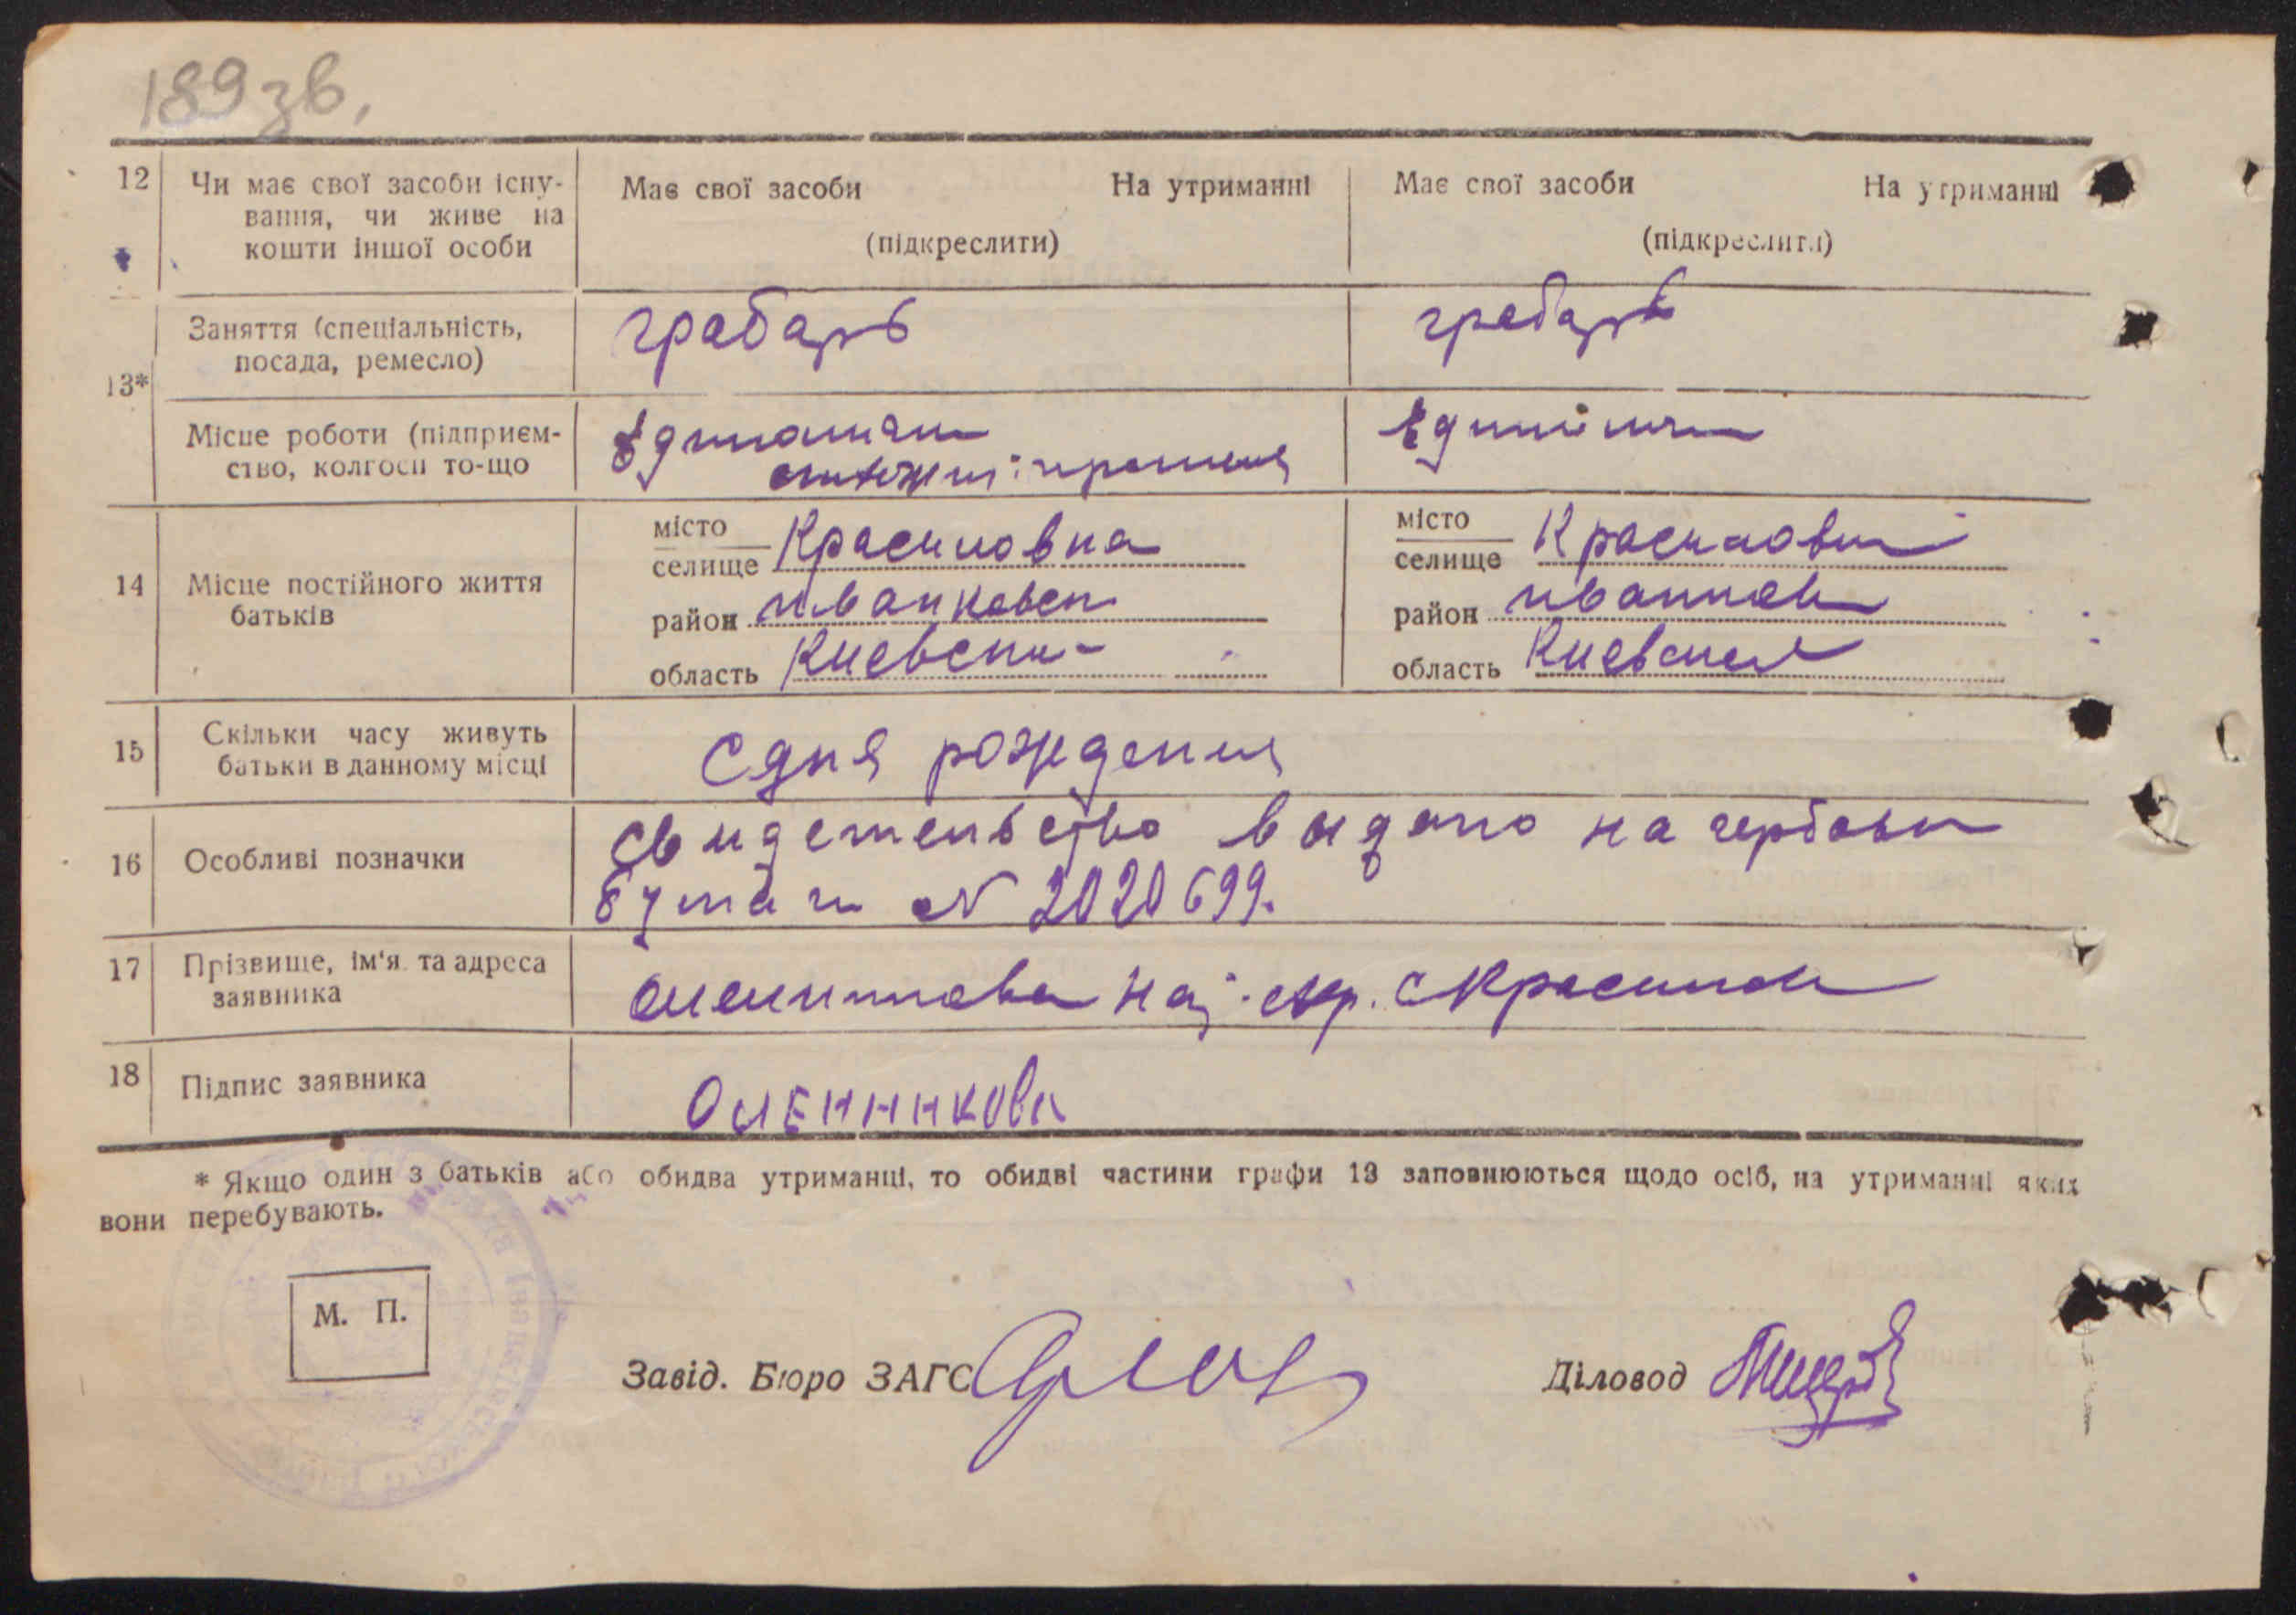 189 зв.
12 Чи має свої засоби існу-
вання, чи живе на
кошти іншої особи
Має свої засоби На утриманні
(підкреслити)
Має свої засоби На утриманні
(підкреслити)
13*
Заняття (спеціальність,
посада, ремесло)
грабарь
грабарь
Місце роботи (підприєм-
ство, колгосп то-що
14 Місце постійного життя
батьків
місто
селище Красиловка
район иванковск
область Киевская
місто
селище Красиловка
район
область Киевская
15 Скільки часу живуть
батьки в данному місці
С дня рождения
16 Особливі позначки
свидетельство выдано на гербовой
бумаги № 2020699.
17 Прізвище, ім'я та адреса
заявника
18 Підпис заявника
* Якщо один з батьків або обидва утриманці, то обидві частини графи 13 заповнюються щодо осіб, на утриманні яких
вони перебувають.
М. П.
Завід. Бюро ЗАГС
Діловод